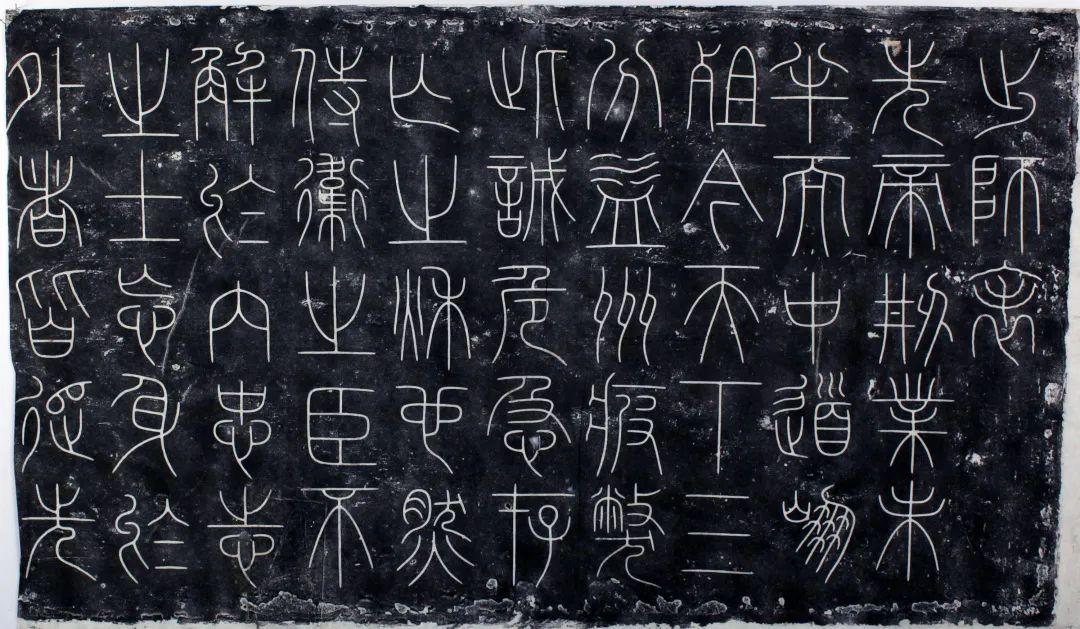 出師表
先帝刱業未
半而中道崩
殂今天下三
分益州疲弊
此誠危急存
亡之秋也然
侍衛之臣不
解於內忠志
之士忘身於
外者皆追先